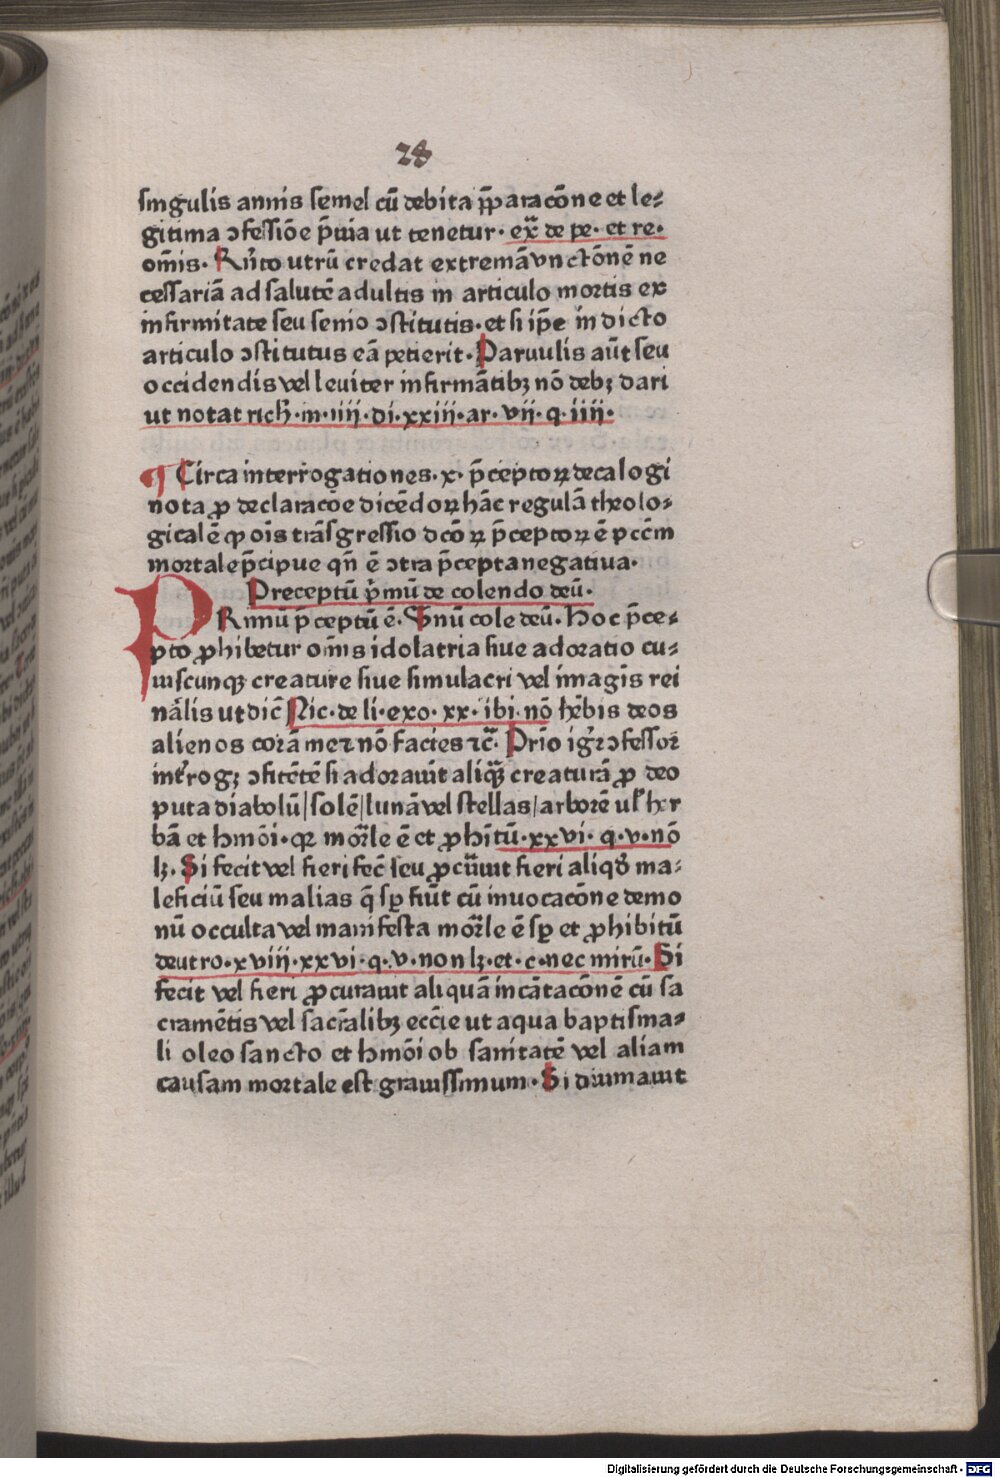 28
singulis annis semel cū debita p̄paracōne et le-
gitima ↄfessiōe p̄uia ut tenetur· ex̄ de pe· et re·
om̄is· Rn̄to utrū credat extremā vnctōnē ne
cessariā ad salutē adultis in articulo mortis ex
infirmitate seu senio ↄstitutis· et si ip̄e in dicto
articulo ↄstitutus eā petierit· Paruulis aūt seu
occidendis vel leuiter infirmātibꝫ nō debꝫ dari
ut notat rich̄·in·iiii·di·xxiii·ar·vii·q·iiii·
¶ Circa interrogationes·x·p̄ceptoꝝ decalogi
nota ꝓ declaracōe dicēdoꝝ hāc regulā theolo-
gicalē ꝙ oīs trāsgressio dcōꝝ p̄ceptoꝝ ē pccm̄
mortale p̄cipue qn̄ ē ↄtra p̄cepta negatiua·
Preceptū p̄mū de colendo deū·
PRimū p̄ceptū ē· Vnū cole deū· Hoc p̄ce-
pto ꝓhibetur om̄is idolatria siue adoratio cu-
iuscunqꝫ creature siue simulacri vel imagīs rei
nālis ut dic̄ Nic·de li·exo·xx·ibi·nō hēbis deos
alienos corā me ⁊ nō facies ⁊c̄· Prīo igr̄ ↄfessor
int̄rogꝫ ↄfitētē si adorauit aliq̄ creaturā ꝓ deo
puta diabolū/solē/lunā vel stellas/arborē ul̄ her
bā et hmōi· qꝛ mor̄le ē et ꝓhītū·xxvi·q·v·nō
lꝫ· Si fecit vel fieri fec̄ seu ꝓcūuit fieri aliqḋ ma-
leficiū seu malias q̄ sꝑ fiūt cū inuocacōne demo
nū occulta vel manifesta mor̄le ē sꝑ et ꝓhibitū
deutro·xviii·xxvi·q·v·non lꝫ·et·c·nec mirū· Si
fecit vel fieri ꝓcurauit aliquā incātacōnē cū sa
cramētis vel sacr̄alibꝫ ecc̄ie ut aqua baptisma-
li oleo sancto et hmōi ob sanitatē vel aliam
causam mortale est grauissimum· Si diuinauit
Digitalisierung gefördert durch die Deutsche Forschungsgemeinschaft - DFG